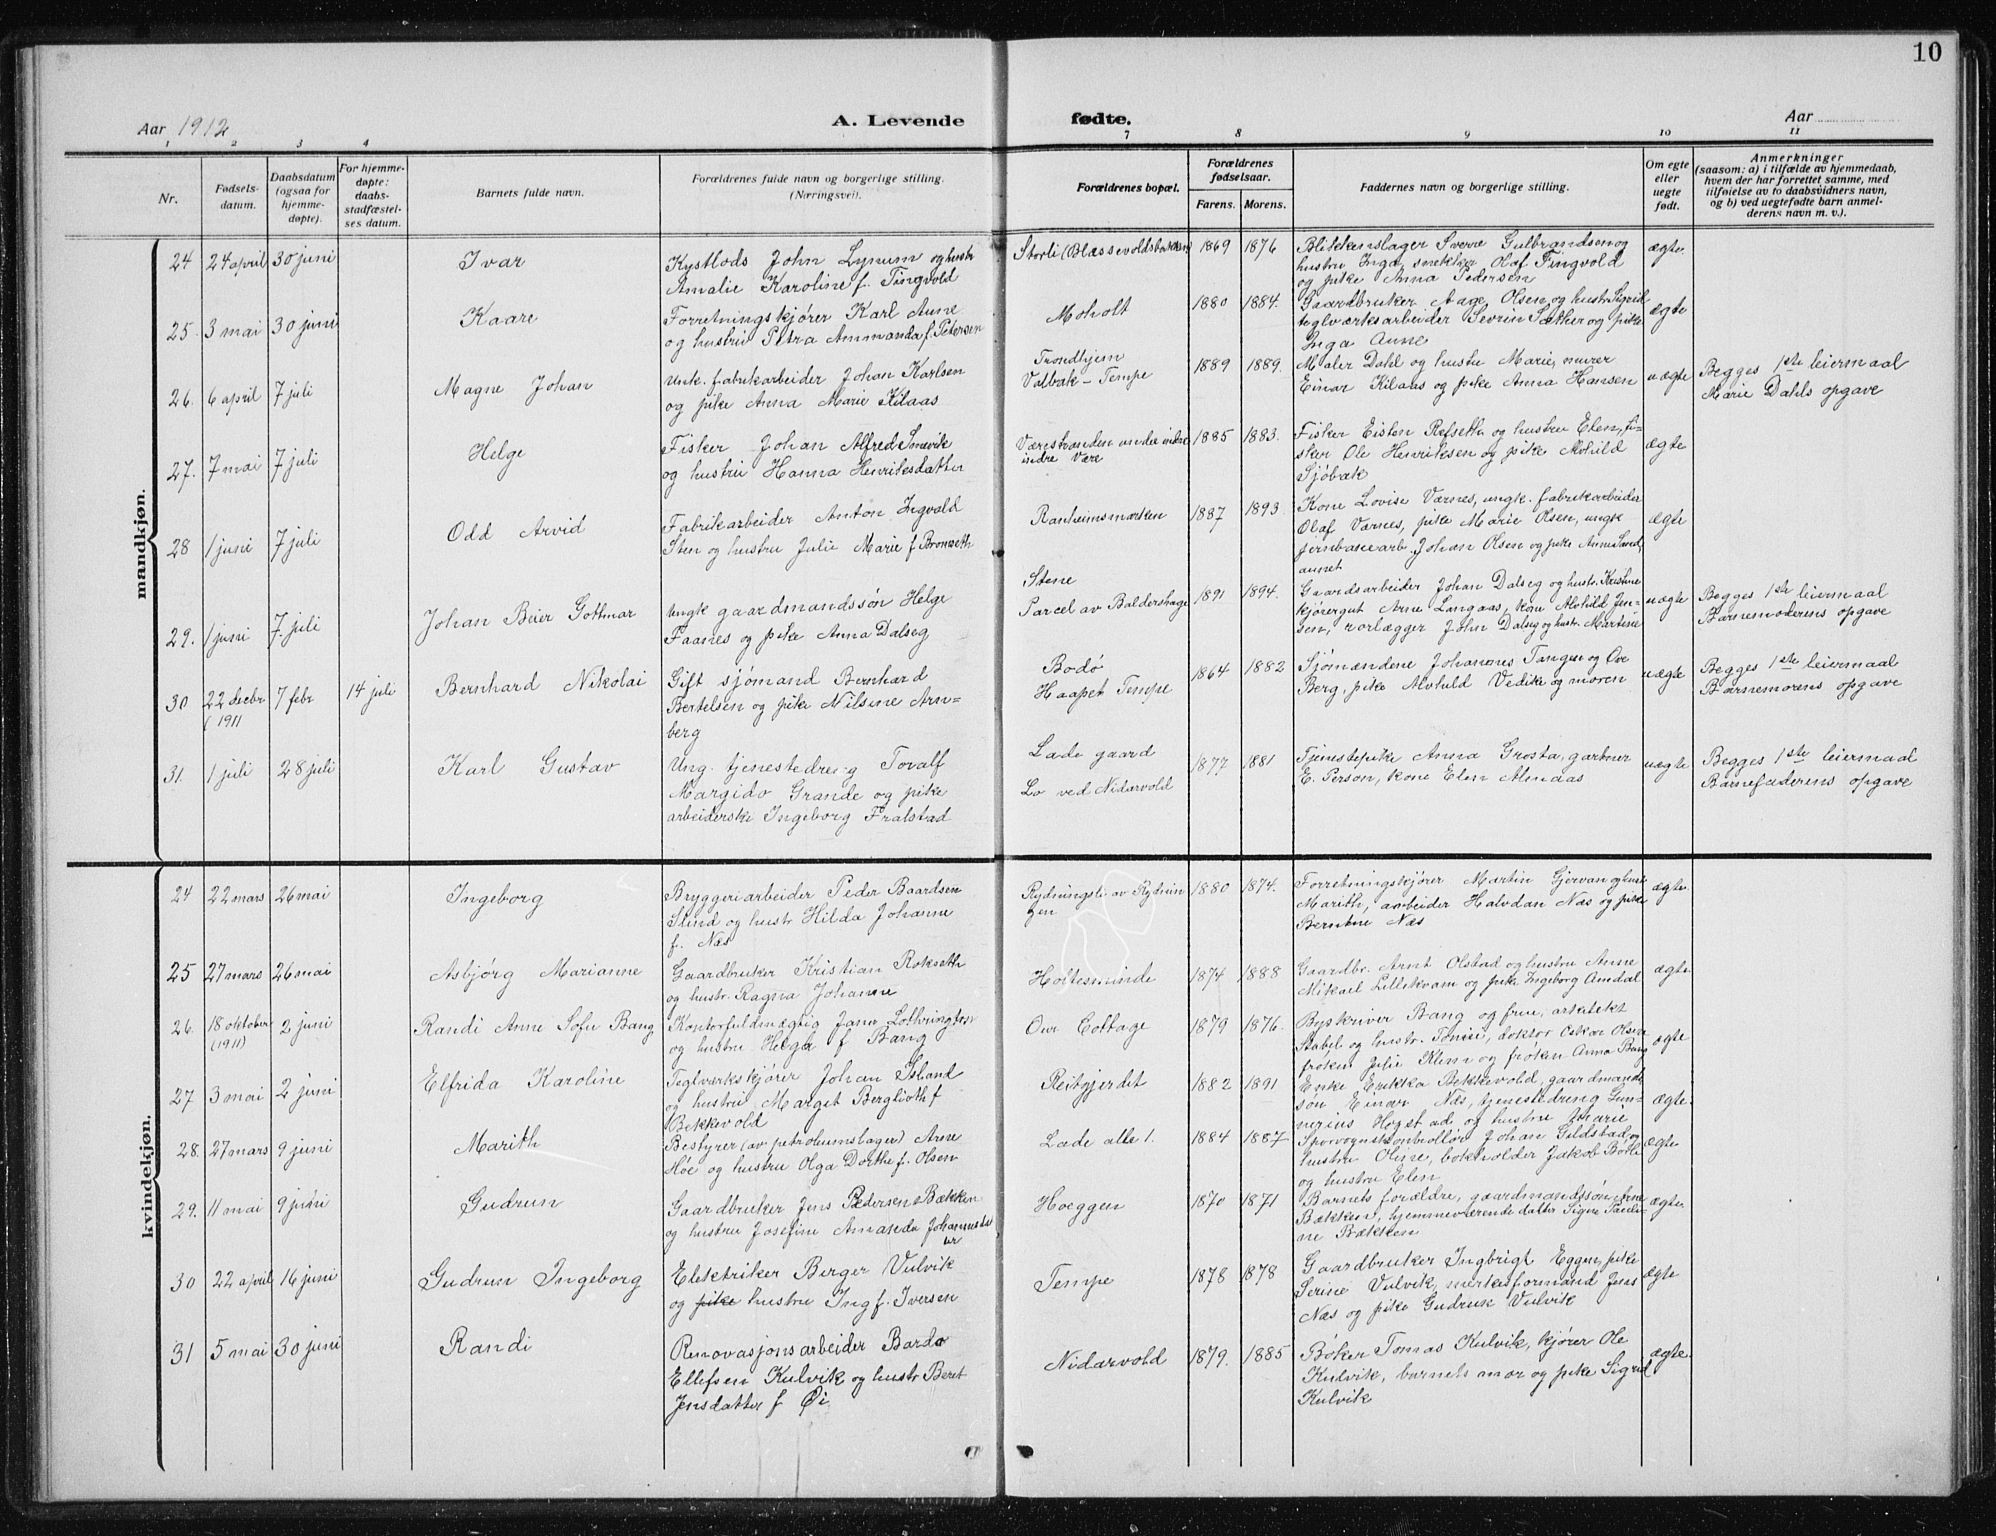 10
Aar 1912
A. Levende fødte.
Aar
1 2 3 4 7 8 9 10 11
Nr.
Fødsels-
datum.
Daabsdatum
(ogsaa for
hjemme-
døpte).
For hjemme-
døpte:
daabs-
stadfæstel-
ses datum.
Barnets fulde navn.
Forældrenes fulde navn og borgerlige stilling.
(Næringsvei).
Forældrenes bopæl.
Forældrenes
fødselsaar.
Farens. Morens.
Faddernes navn og borgerlige stilling.
Om egte
eller
uegte
født.
Anmerkninger
(saasom: a) i tilfælde av hjemmedaab,
hvem der har forrettet samme, med
tilføielse av to daabsvidners navn,
og b) ved uegtefødte barn anmel-
derens navn m. v.).
mandkjøn.
24 24 april 30 juni Ivar
Kystlods John Lynum og hustr
Amalie Karoline f. Tingvold
Storli 1869 1876
Blikkenslager Sverre Gulbrandsen og
hustru Inga, snekker Olaf Tingvold
og pike Anna Pedersen
ægte
25. 3 mai 30 juni Kaare
Forretningskjører Karl Aune
og hustru Petra Ammanda f. Pedersen
Moholt 1880 1884.
Gaardbruker Aage Olsen og hustr. Sigrid
teglværksarbeider Sevrin Sæther og pike
Inga Aune
ægte
26. 6 april 7 juli Magne Johan
Unk. fabrikarbeider Johan Karlsen
og pike Anna Marie Kilaas
Trondhjem
Valbak - Tempe
1889 1889.
Maler Dahl og hustru Marie, murer
Einar Kilaas og pike Anna Hansen
uægte
Begges 1ste leiermaal
Marie Dahls opgave
27. 7 mai 7 juli Helge
Fisker Johan Alfred Snevik
og hustru Hanna Henriksdatter
Værestranden under indre
indre Være
1885 1883.
Fisker Eisten Refseth og hustru Elen, fi-
sker Ole Henriksen og pike Alvhild
Sjøbak
ægte
28 1 juni 7 juli Odd Arvid
Fabrikarbeider Anton Ingvald
Sten og hustru Julie Marie f Bromseth
Ranheimsmarken 1887 1893
Kone Lovise Værnes, ungk. fabrikarbeider
Olaf Værnes, pike Marie Olsen, ungk
jernbanearb. Johan Olsen og pike Anna Sand
aunet
ægte
29. 1 juni 7 juli Johan Beier Gottmar
Ungk gaardmandssøn Helge
Faanes og pike Anna Dalseg
Stene
Parcel av Baldershage
1891 1894.
Gaardsarbeider Johan Dalseg og hustr. Kristine
kjørergut Arne Langaas, kone Alvhild Jen-
sen, rorlægger John Dalseg og hustr. Martine
uægte
Begges 1ste leiermaal
Barnemoderens opgave
30 22 decbr 7 febr 14 juli Bernhard Nikolai
(1911
Gift sjømand Bernhard
Bertelsen og pike Nilsine Arn-
berg
Bodø
Haapet Tempe
1864 1882
Sjømændene Johannes Tangen og Ove
Berg, pike Alvhild Vedike og moren
uægte
Begges 1ste leiermaal
Barnemorens opgave
31. 1 juli 28 juli Karl Gustav
Ung. tjenestedreng Toralf
Margido Grande og pike
arbeiderske Ingeborg Fralstad
Lade gaard
Lo ved Nidarvold
1877 1881
Tjenestepike Anna Grosta, gartner
E. Person, kone Elen Almaas
uægte
Begges 1ste leiermaal
Barnefaderens opgave
kvindekjøn.
24 22 mars 26 mai Ingeborg
Bryggeriarbeider Peder Baardsen
Slind og hustr Hilda Johanne
f. Næs
Rydningsli av Rydnin
gen
1880 1874.
Forretningskjører Martin Gjervan og hustr
Marith, arbeider Halvdan Næs og pike
Berntine Næs
ægte
25 27 mars 26 mai Asbjørg Marianne
Gaardbruker Kristian Rokseth
og hustr. Ragna Johanne
Holtesminde 1874 1888
Gaardbr. Arnt Olstad og hustru Anne
Mikael Lillekvam og pike Ingeborg Amdal
ægte
26. 18 oktober 2 juni Randi Anne Sofie Bang
(1911)
Kontorfuldmægtig Jans Lothringtsen
og hustru Helga f Bang
Our Cottage 1879 1876.
Byskriver Bang og frue, arkitekt
Stabel og hustr. Tomine, doktor Oskar Olsen
frøken Julie Klem og frøken Anna Bang
ægte
27 3 mai 2 juni Elfrida Karoline
Teglværkskjører Johan Island
og hustru Marget Berglioth f
Bekkevold
Reitgjerdet 1882 1891
Enke Erikka Bekkevold, gaardmands
søn Einar Næs, tjenestedreng Lun-
nerius Hogstad og hustru Marie
ægte
28. 27 mars 9 juni Marith
Bestyrer (av petroleumslager) Arne
Höe og hustru Olga Dorthe f. Olsen
Lade alle 1. 1884 1887
Sporvognskontrollør Johan Gildstad og
hustru Oline, bokholder Jakob Bötle
og hustru Elen
ægte
29. 11 mai 9 juni Gudrun
Gaardbruker Jens Pedersen Bækken
og hustru Josefine Amanda Johannesdat
ter
Hoeggen 1870 1871
Barnets forældre, gaardmandsøn Arne
Bækken, hjemmeværende datter Signe Pauli-
ne Bækken
ægte.
30 22 april 16 juni Gudrun Ingeborg
Elektriker Birger Vulvik
og pike hustru Ing f. Iversen
Tempe 1878 1878
Gaardbruker Ingbrigt Eggen, pike
Serine Vulvik, merkesformand Jens
Næs og pike Gudrun Vulvik
ægte
31 5 mai 30 juni Randi
Renovasjonsarbeider Bardo
Ellefsen Kulvik og hustr Beret
Jensdatter f Øi
Nidarvold 1879. 1885
Bøker Tomas Kulvik, kjører Ole
Kulvik, barnets mor og pike Sigrid
Kulvik
ægte.